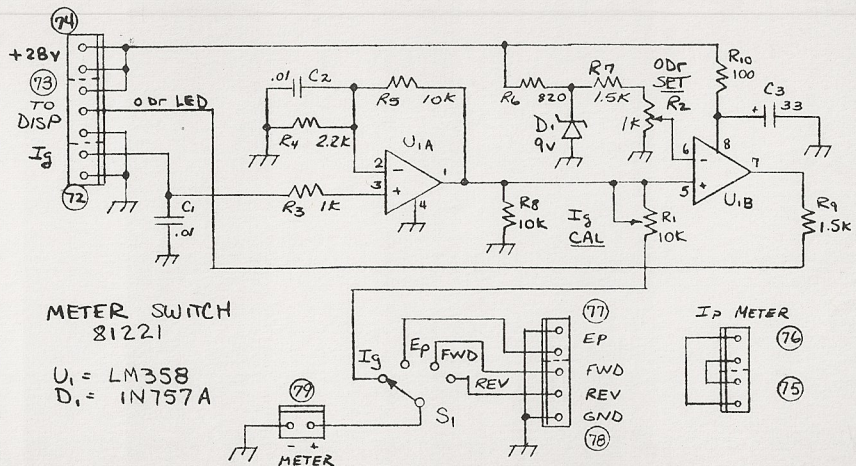 74
+28V
73
TO
DISP
Ig
72
ODr LED
C1
.01
.01
C2
R5
10K
R4
2.2K
U1A
2
-
3
+
1
4
R3
1K
R6
820
D1
9V
R7
1.5K
ODr
SET
R2
1K
R10
100
+
C3
33
8
6
-
5
+
7
U1B
R8
10K
Ig
CAL
R1
10K
R9
1.5K
METER SWITCH
81221
U1 = LM358
D1 = 1N757A
Ig
EP
FWD
REV
S1
79
- +
METER
77
EP
FWD
REV
GND
78
IP METER
76
75